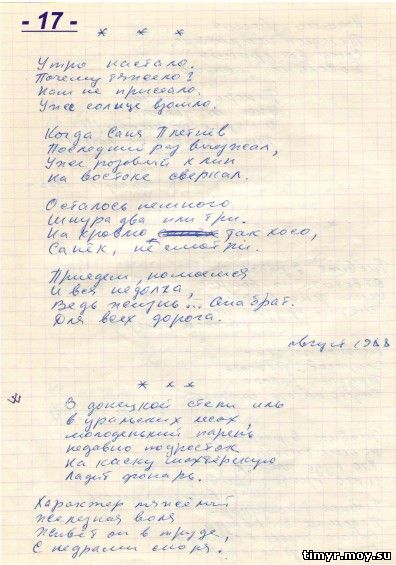 - 17 -
* * *
Утро настало.
Почему тяжело?
Нам не пристало.
Уже солнце взошло.
Когда Саня Плетнёв
Последний раз выезжал,
Уже розовый клин
На востоке сверкал.
Осталось немного
Шнура два или три.
На кровлю так косо,
Санёк, не смотри.
Приедем, помоемся
И вся недолга,
Ведь жизнь... Она брат.
Для всех дорога.
Август 1988
* * *
В донецкой степи иль
в уральских лесах
молоденький парень,
недавно подросток
На каску шахтёрскую
Ладит фонарь.
Характер тяжёлый
Железная воля
Живёт он в труде,
С недрами споря.
timyr.moy.su